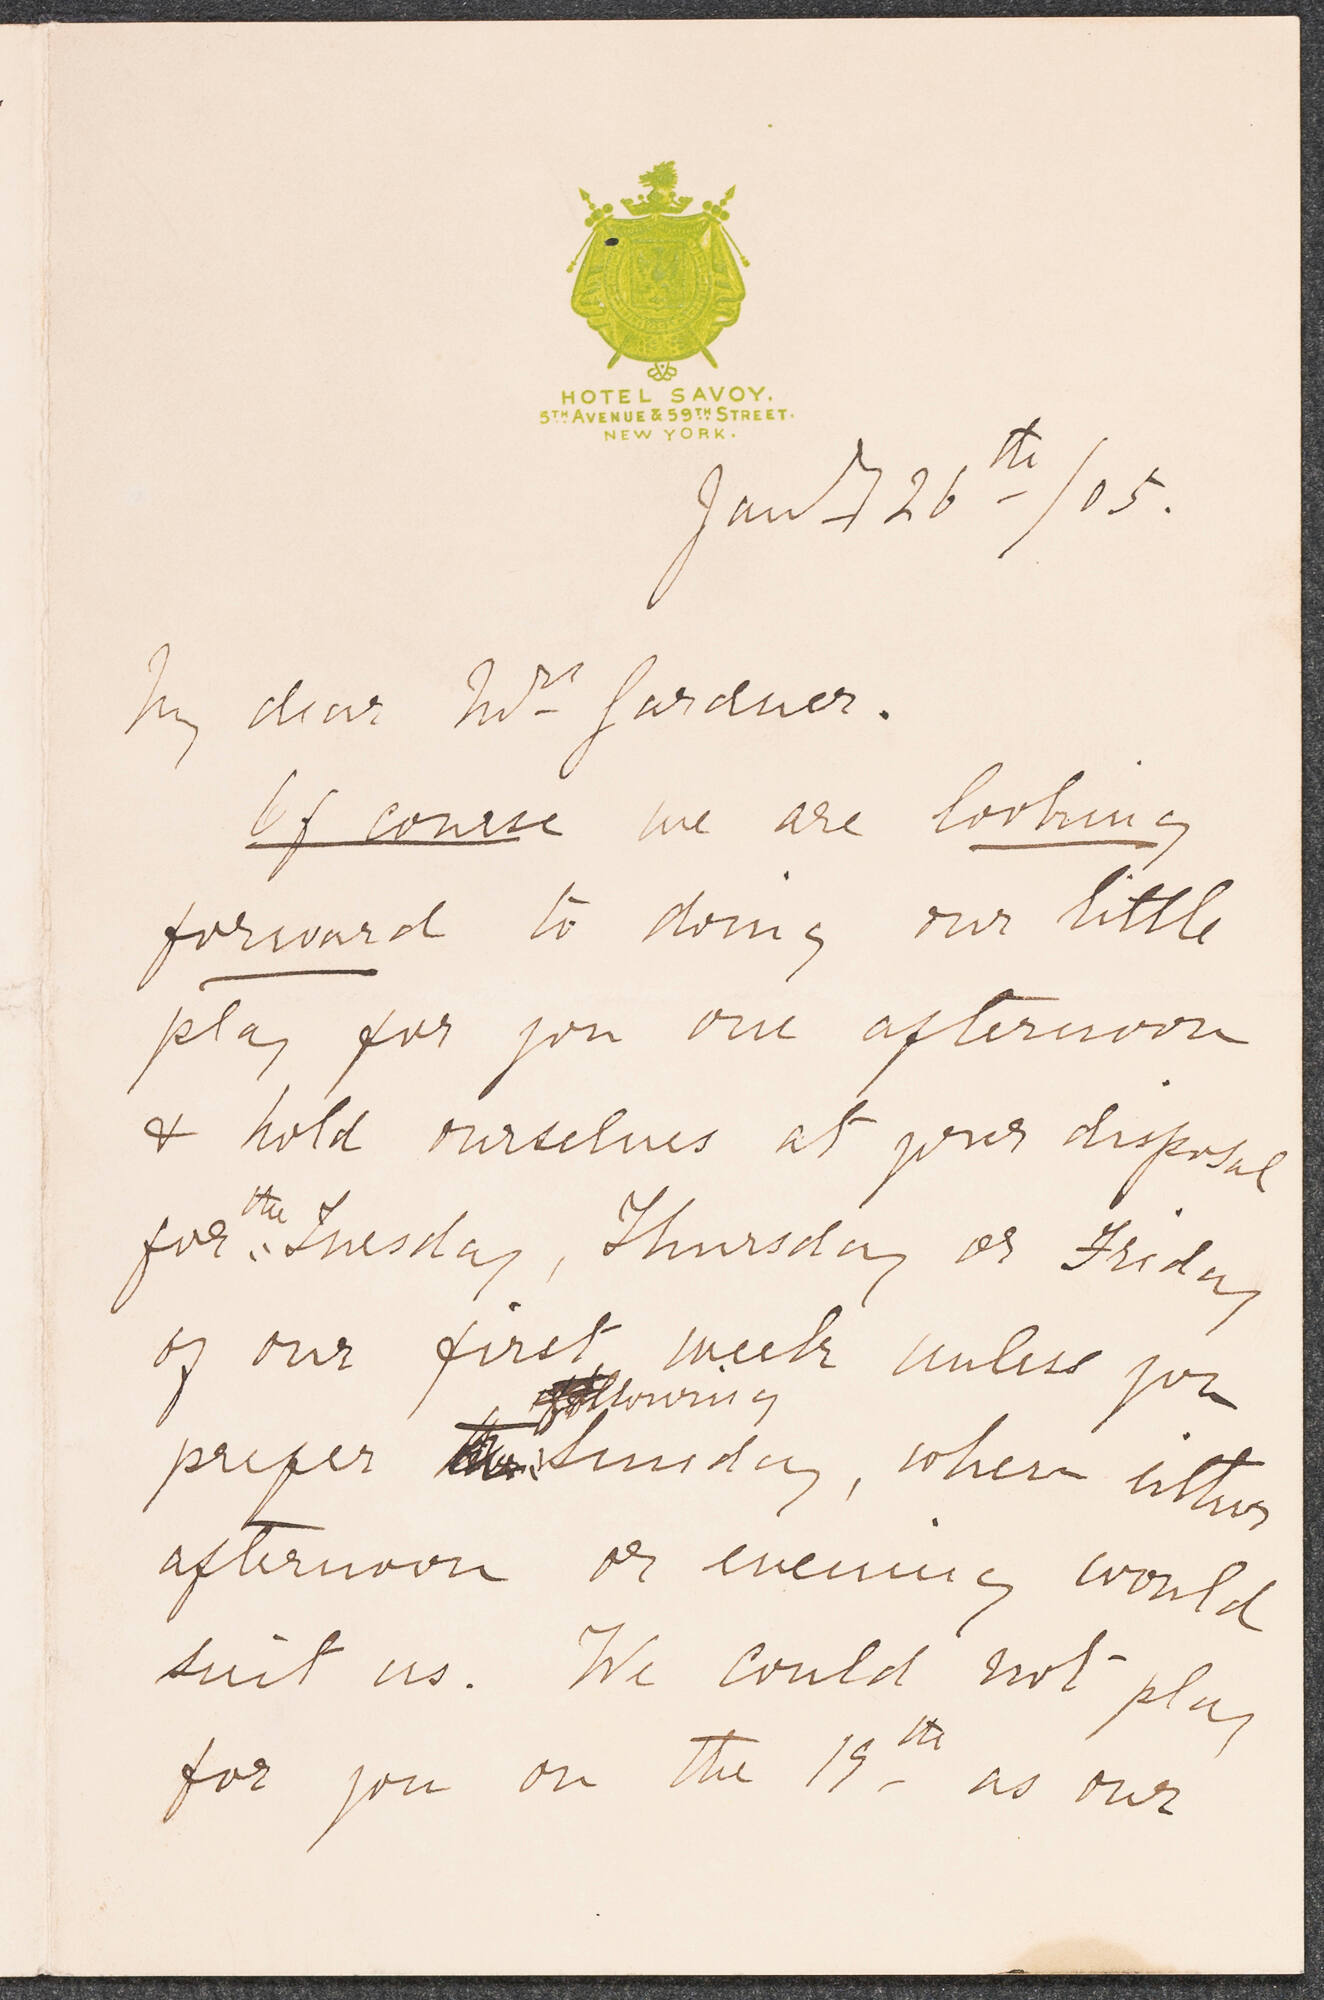 HOTEL SAVOY.
5TH AVENUE & 59TH STREET.
NEW YORK.
Jany 26th/05.
My dear Mrs Gardner.
Of course we are looking
forward to doing our little
play for you one afternoon
& hold ourselves at your disposal
for the Tuesday, Thursday or Friday
of our first week unless you
following
prefer Sunday, when either
afternoon or evening would
suit us. We could not play
for you on the 19th as our